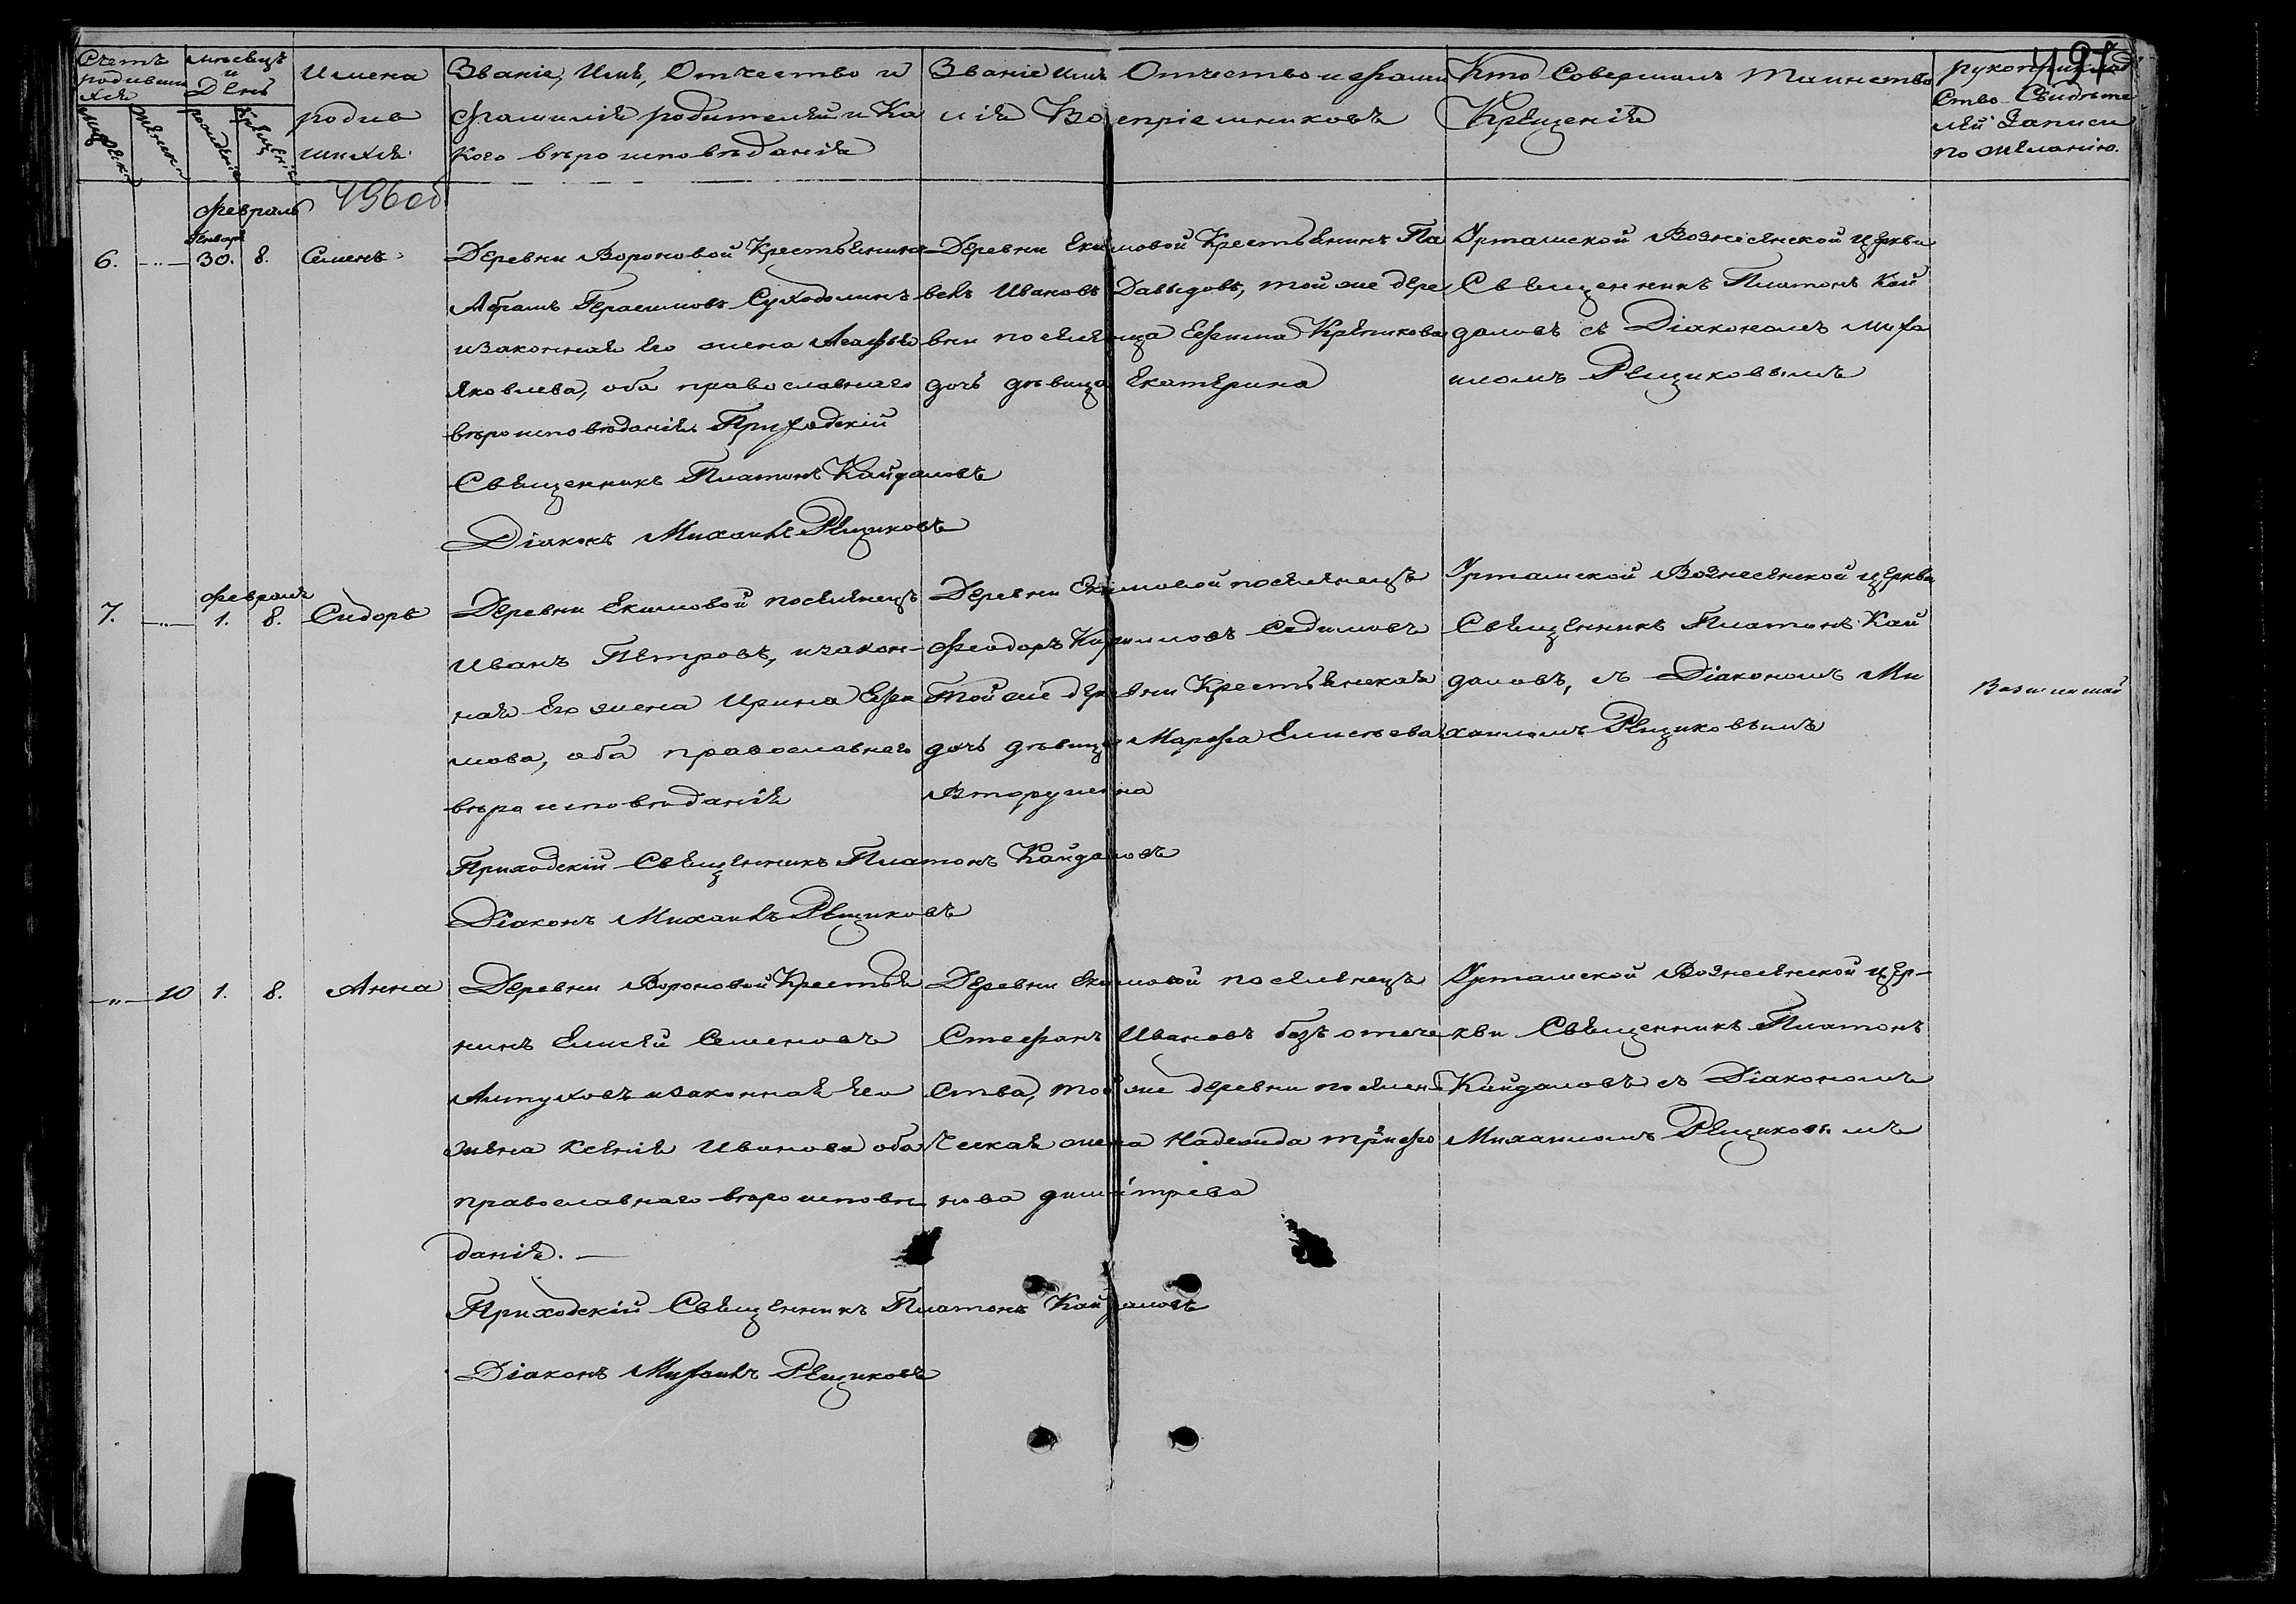 Счетъ родивши хся
мужеска
женски
мѣсяцъ и День
рожденія
крещенія
Имена
родив
шихся
Званіе, Имя, Отчество и
фамилія родителей и Ка
кого вѣроисповѣданія
Званіе имя Отчество и фами
лія Воспріемниковъ
Кто Совершалъ Таинство
Крещенія
рукоприклад
ство Свидѣте
лей Записи
по желанію.
497
496об
февраль
Январь
6. —„— 30. 8. Семенъ
Деревни Вороновой Крестьянинъ
Абрамъ Герасимовъ Суходолинъ
и законная его жена Агафья
Яковлева, оба православнаго
вѣроисповѣданія Приходскій
Священникъ Платонъ Кайдаловъ
Діаконъ Михаилъ Рещиковъ
Деревни Екимовой Крестьянинъ Па
велъ Ивановъ Давыдовъ, той же дере
вни поселенца Ефима Крѣпикова
дочь дѣвица Екатерина
Урташской Вознесенской церкви
Священникъ Платонъ Кай
даловъ съ Діакономъ Миха
иломъ Рещиковымъ
февраля
7. —„— 1. 8. Сидоръ
Деревни Екимовой поселенецъ
Иванъ Петровъ, и закон-
ная Его жена Ирина Ефи
мова, оба православнаго
вѣроисповѣданія
Приходскій Священникъ Платонъ Кайдаловъ
Діаконъ Михаилъ Рещиковъ
Деревни Екимовой поселенецъ
Феодоръ Садымовъ
той же деревни Крестьянская
дочь дѣвица Марфа Елисѣева
Вторушена
Урташской Вознесенской церкви
Священникъ Платонъ Кай
даловъ, съ Діакономъ Ми
хаиломъ Рещиковымъ
—„— 10 1. 8. Анна
Деревни Вороновой Крестья
нинъ Елисей Семеновъ
Алтуховъ и законная его
жена Ксенія Иванова оба
православнаго вѣроисповѣ
данія. —
Приходскій Священникъ Платонъ Кайдаловъ
Діаконъ Михаилъ Рещиковъ
Деревни Екимовой поселенецъ
Стефанъ Ивановъ безъ отече
ства, той же деревни поселен
ческая жена Надежда трифо
нова димитрева
Урташской Вознесенской цер-
кви Священникъ Платонъ
Кайдаловъ съ Діакономъ
Михаиломъ Рещиковымъ